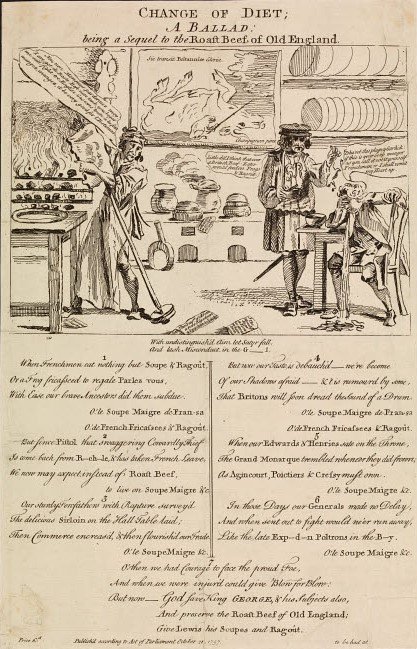 CHANGE OF DIET;
A BALLAD:
being a Sequel to the Roast Beef of Old England.
Sic transit Britanniæ Gloria.
With undistinguish'd Aim let Satyr fall,
And lash Misconduct in the G___l.
1
When Frenchmen eat nothing but Soupe & Ragout,
Or a Frog fricasseed to regale Parlez vous,
With Ease our brave Ancestors did them subdue.
O! le Soupe Maigre de Fran-sa
O! de French Fricasees & Ragout.
2
But since Pistol that swaggering Cowardly Thief
Is come back from R-ch-le, & has taken French Leave,
We now may expect instead of Roast Beef,
to live on Soupe Maigre &c.
3
Our sturdy Forefathers with Rapture survey'd
The delicious Sirloin on the Hall Table laid,
Then Commerce encreas'd, & then flourish'd our Trade.
O! le Soupe Maigre &c.
4
But now our Taste is debauch'd ___ we're become
Of our Shadows afraid ___ & t is rumour'd by some,
That Britons will soon dread the Sound of a Drum.
O! le Soupe Maigre de Fran-sa
O! de French Fricassees & Ragout.
5
When our Edwards & Henries sate on the Throne,
The Grand Monarque trembled whene'er they did frown,
As Agincourt, Poictiers & Cressy must own.
O! le Soupe Maigre &c.
6
In those Days our Generals made no Delay,
And when sent out to fight would never run away,
Like the late Exp-d-n Poltrons in the B-y.
O! le Soupe Maigre &c.
O then we had Courage to face the proud Foe,
And when we were injur'd could give Blow for Blow:
But now ___ God save King GEORGE, & his Subjects also,
And preserve the Roast Beef of Old England;
Give Lewis his Soupes and Ragout.
Price 6.d
Publish'd according to Act of Parliament October 21, 1757.
to be had at